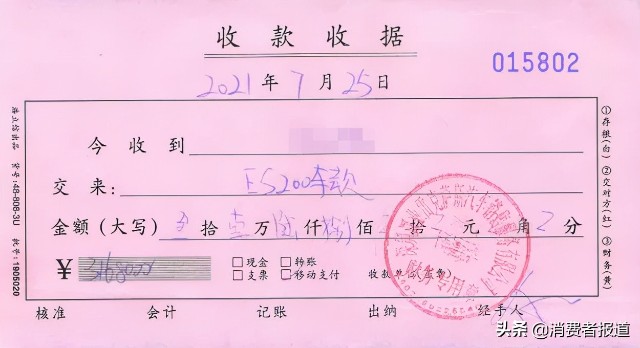 收款收据
015802
2021年7月25日
今收到
交来: ES200车款
金额(大写) 叁拾壹万 仟 佰 拾 元 角 分
¥ 316800
□现金 □转账
□支票 □移动支付 收款单位(盖章)
核准 会计 记账 出纳 经手人
①存根(白) ②交对方(红) ③财务(黄)
浩立信出品 货号:48-808-3U 批号:1905020
财务专用章
头条@消费者报道